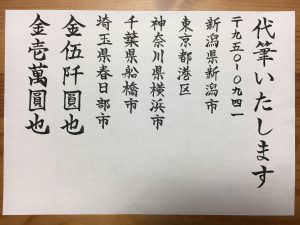 代筆いたします
〒九五〇-〇九四一
新潟県新潟市
東京都港区
神奈川県横浜市
千葉県船橋市
埼玉県春日部市
金伍阡圓也
金壱萬圓也